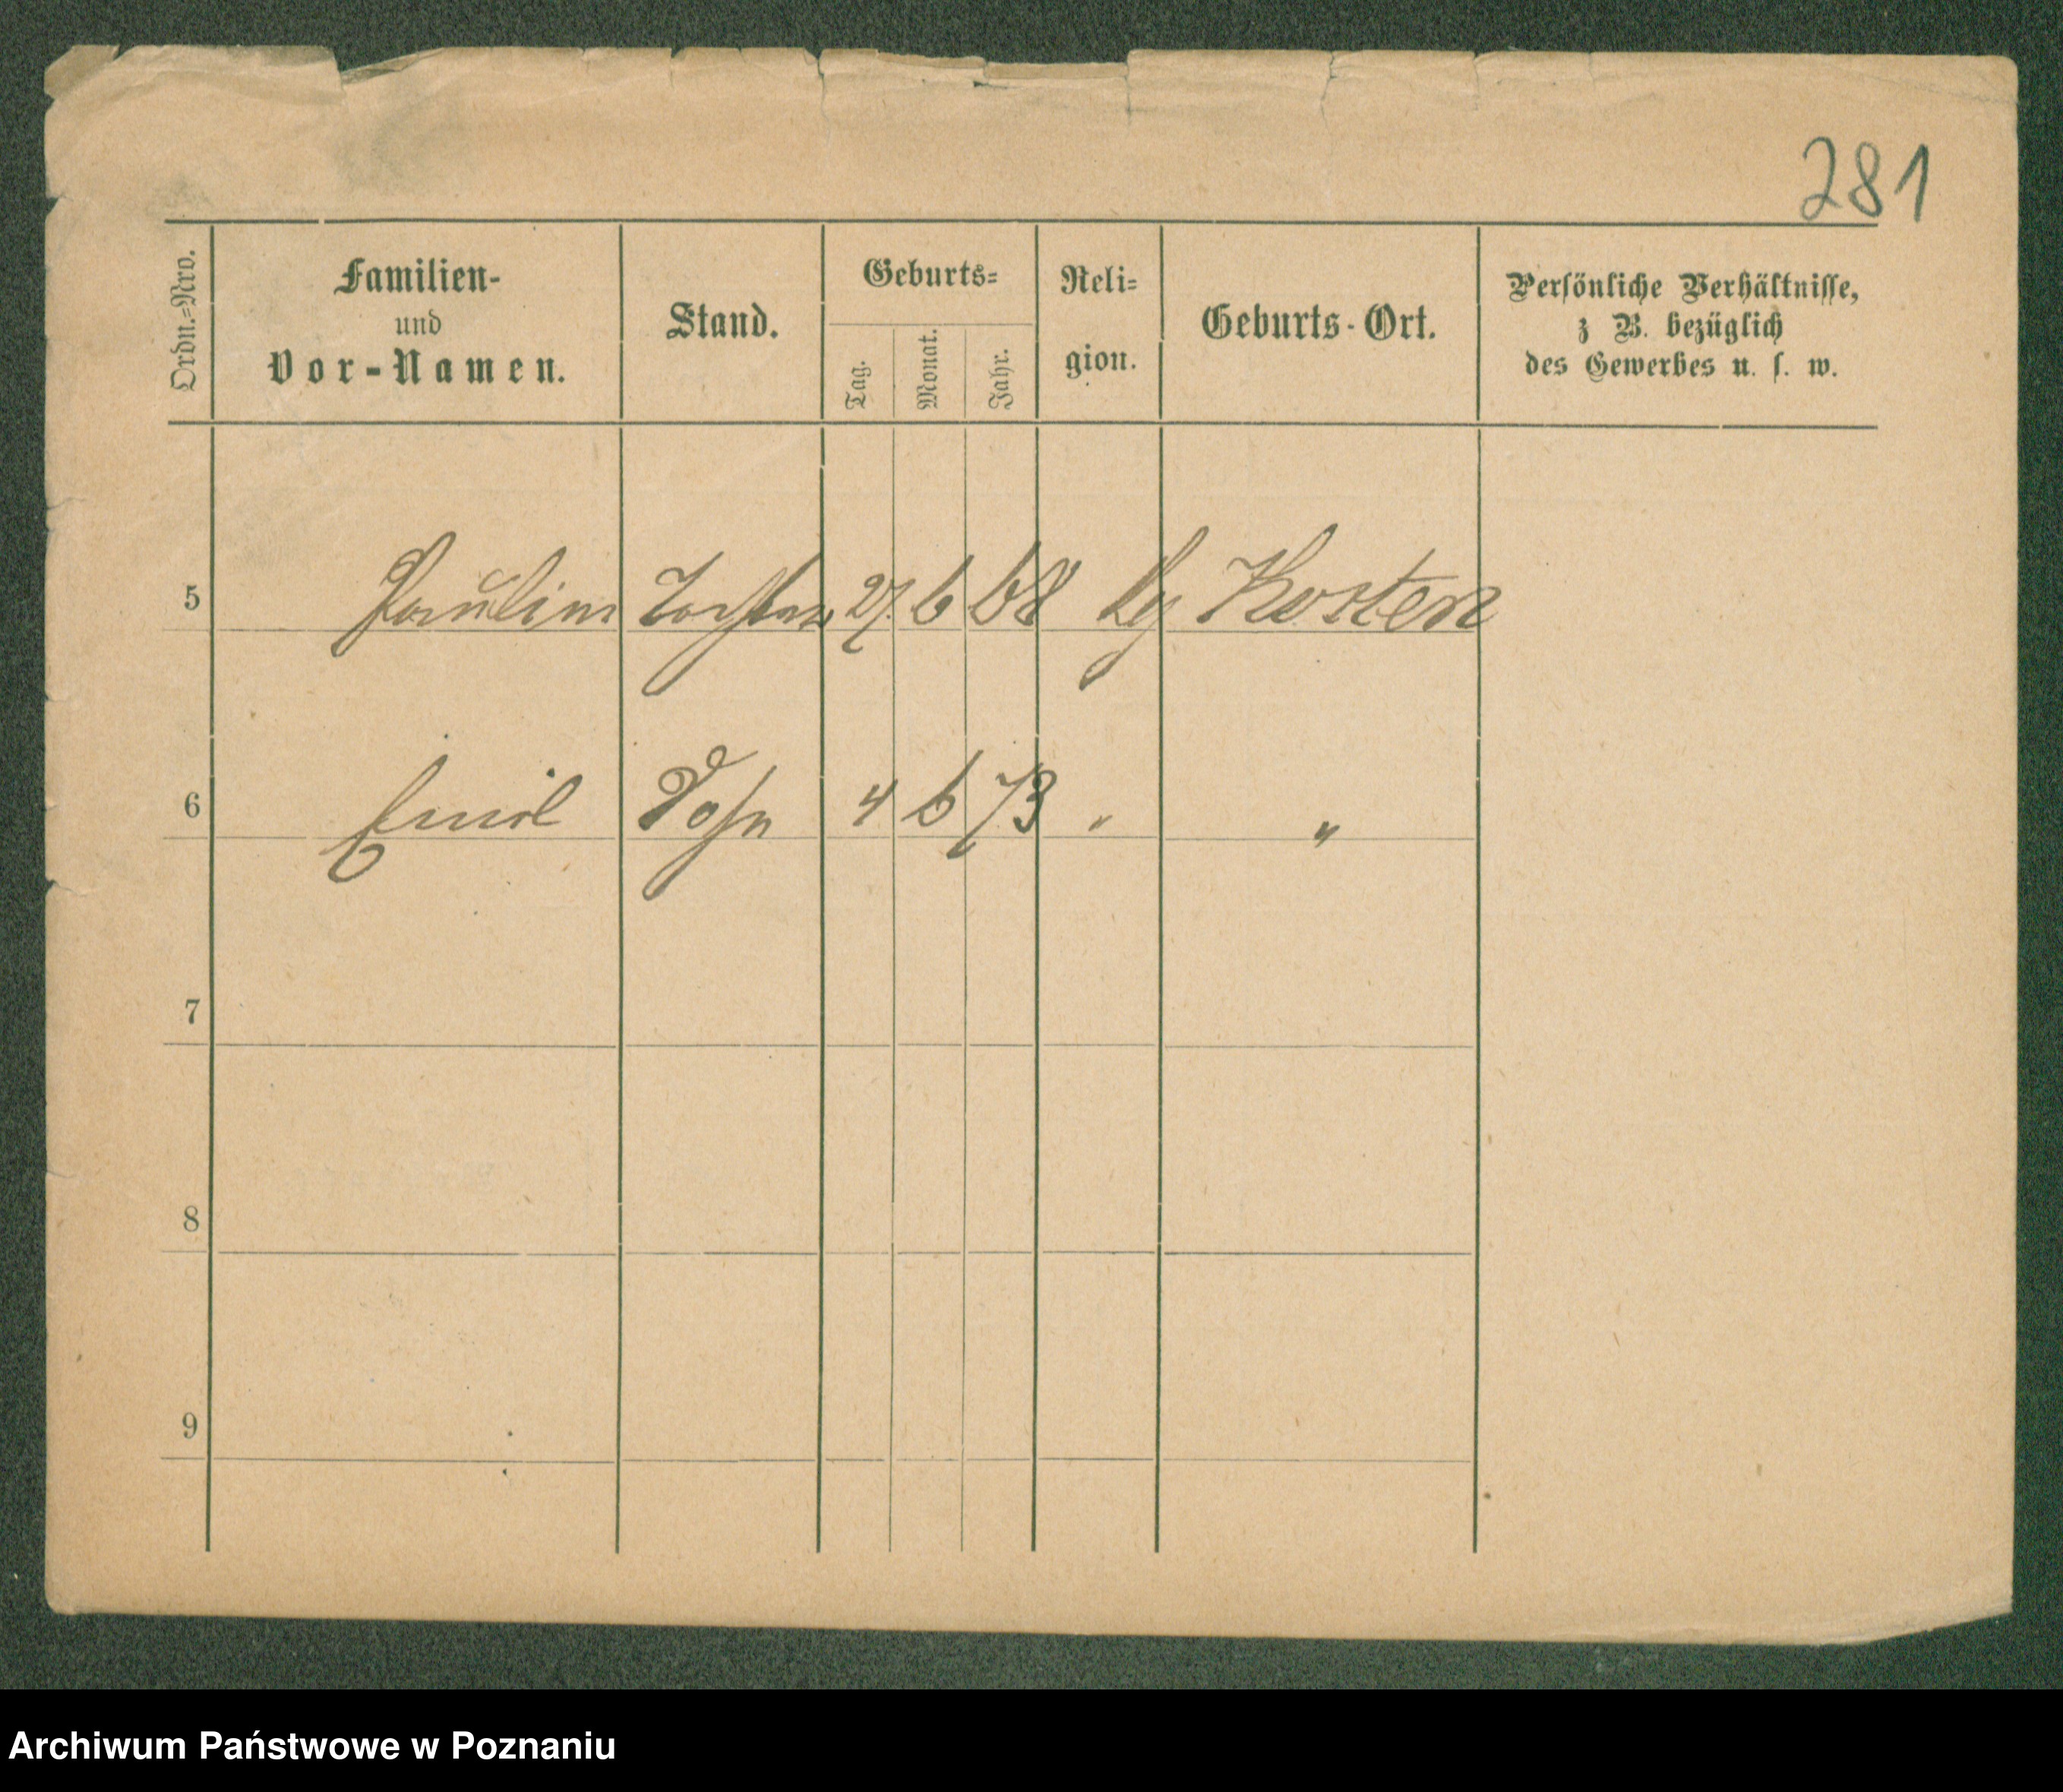 281
Ordn.=Nro.
Familien-
und
Vor-Namen.
Stand.
Geburts=
Tag.
Monat.
Jahr.
Reli=
gion.
Geburts-Ort.
Persönliche Verhältnisse,
z B. bezüglich
des Gewerbes u. s. w.
5 Pauline Tochter 27. 6 68 Kosten
6 Emil Sohn 4 6 73 " "
7
8
9
Archiwum Państwowe w Poznaniu